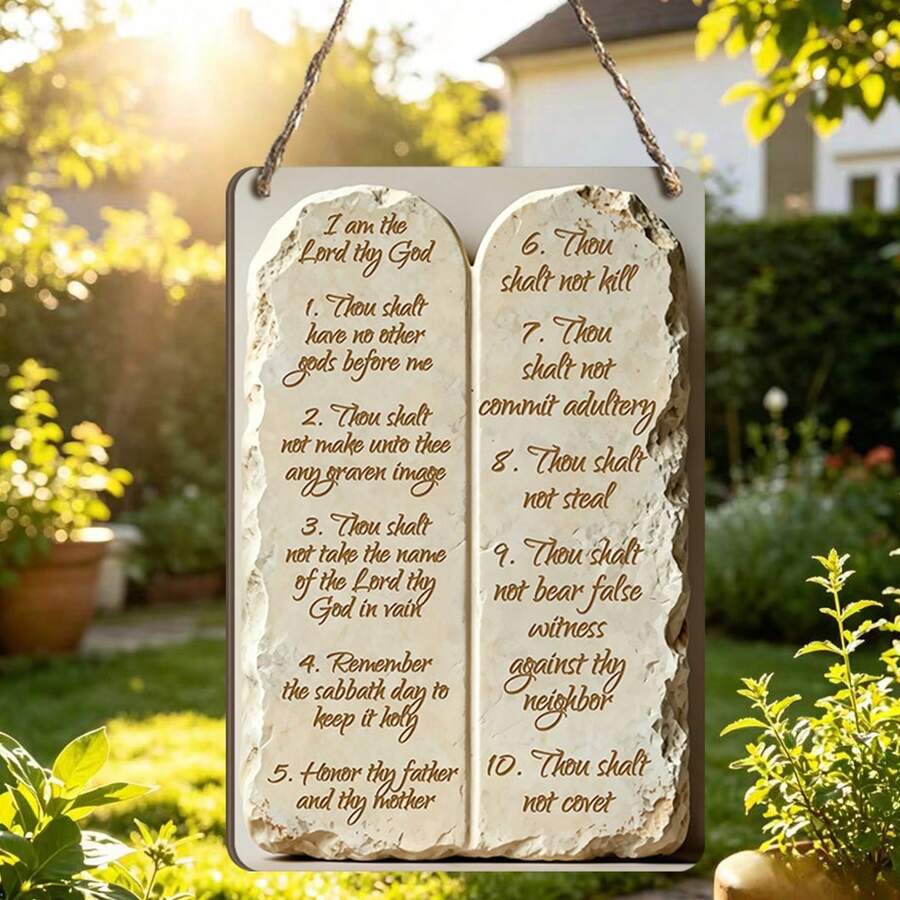 I am the
Lord thy God
1. Thou shalt
have no other
gods before me
2. Thou shalt
not make unto thee
any graven image
3. Thou shalt
not take the name
of the Lord thy
God in vain
4. Remember
the sabbath day to
keep it holy
5. Honor thy father
and thy mother
6. Thou
shalt not kill
7. Thou
shalt not
commit adultery
8. Thou shalt
not steal
9. Thou shalt
not bear false
witness
against thy
neighbor
10. Thou shalt
not covet